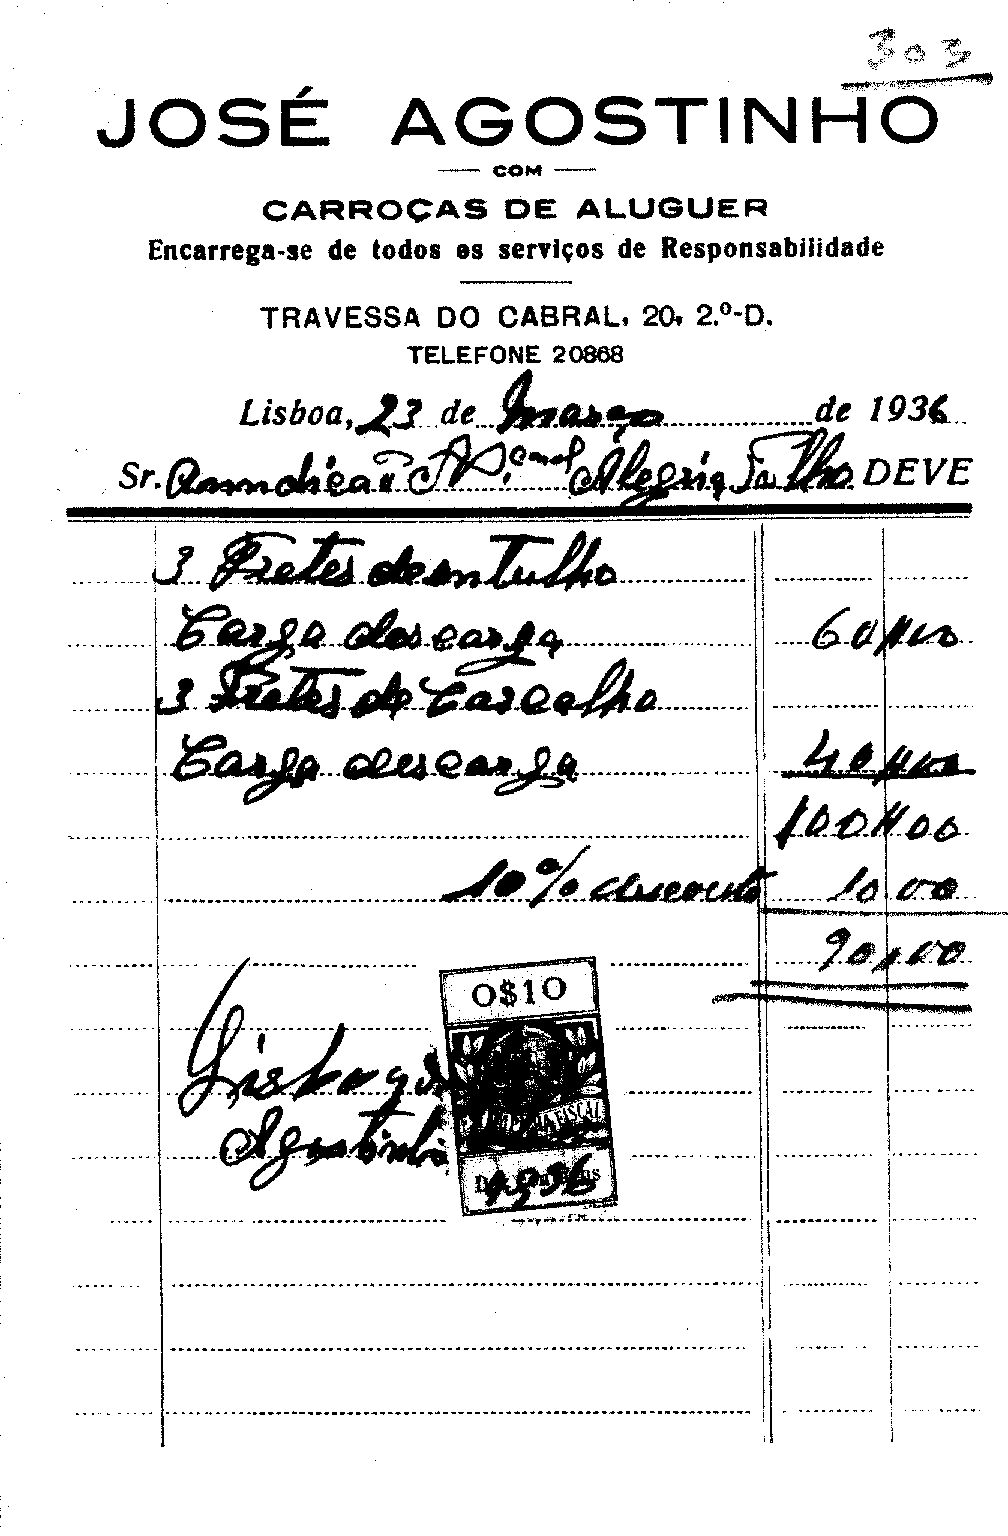 303
JOSÉ AGOSTINHO
COM
CARROÇAS DE ALUGUER
Encarrega-se de todos os serviços de Responsabilidade
TRAVESSA DO CABRAL, 20, 2.º-D.
TELEFONE 20868
Lisboa, 23 de Março de 1936
Sr. Alegria DEVE
3 Fretes de entulho
Carga descarga 60$00
3 Fretes de Cascalho
Carga descarga 40$00
100$00
10% desconto 10.00
90,00
0$10
Lisboa
Agostinho
1936